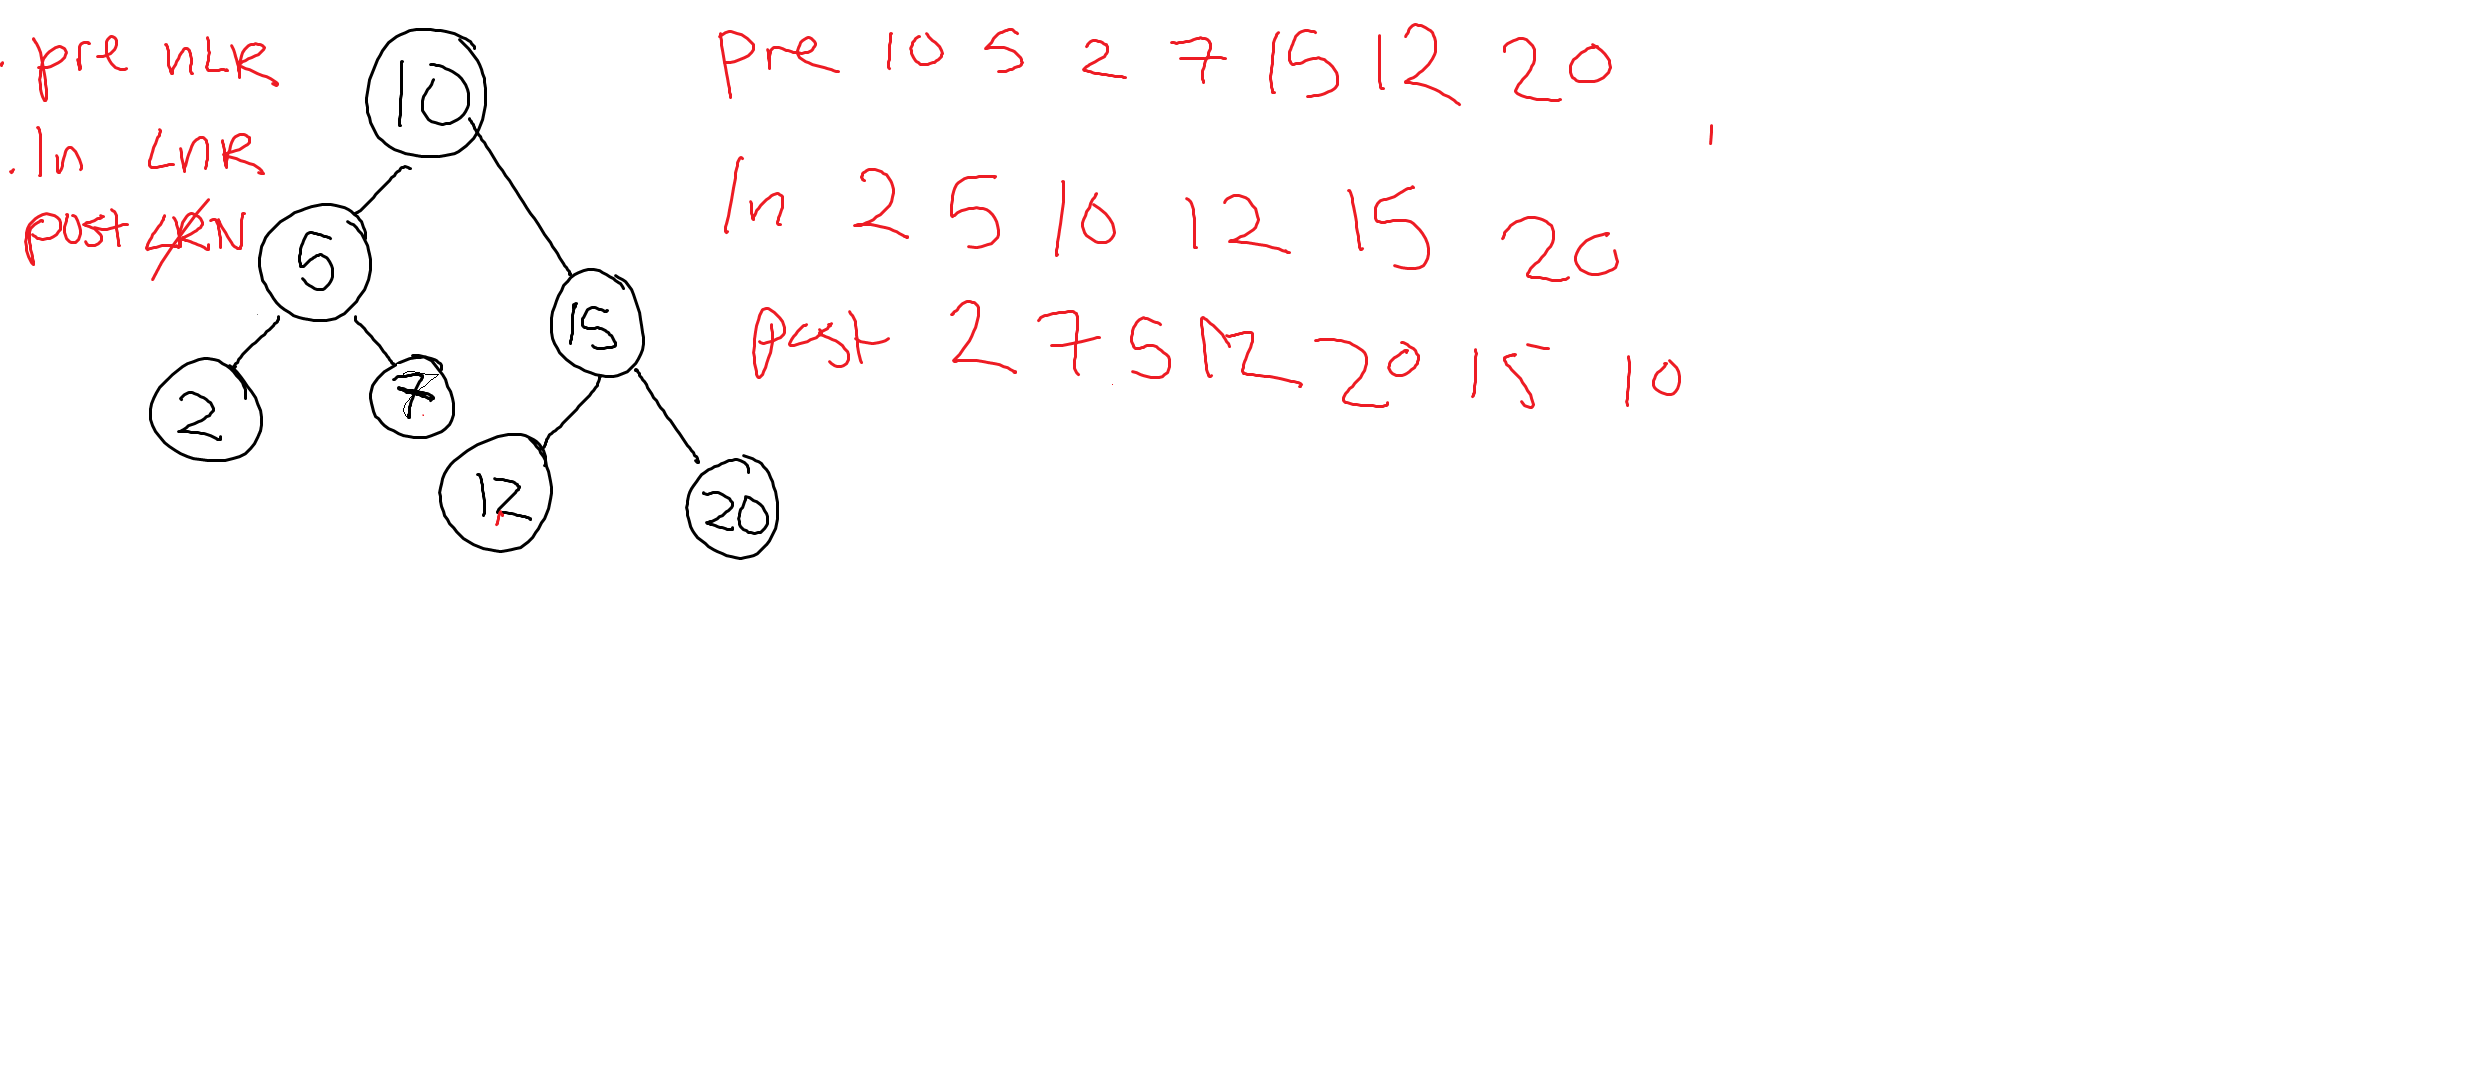 pre nLR
In LnR
post LRN
10
5
15
2
7
12
20
pre 10 5 2 7 15 12 20
In 2 5 10 12 15 20
post 2 7 5 12 20 15 10